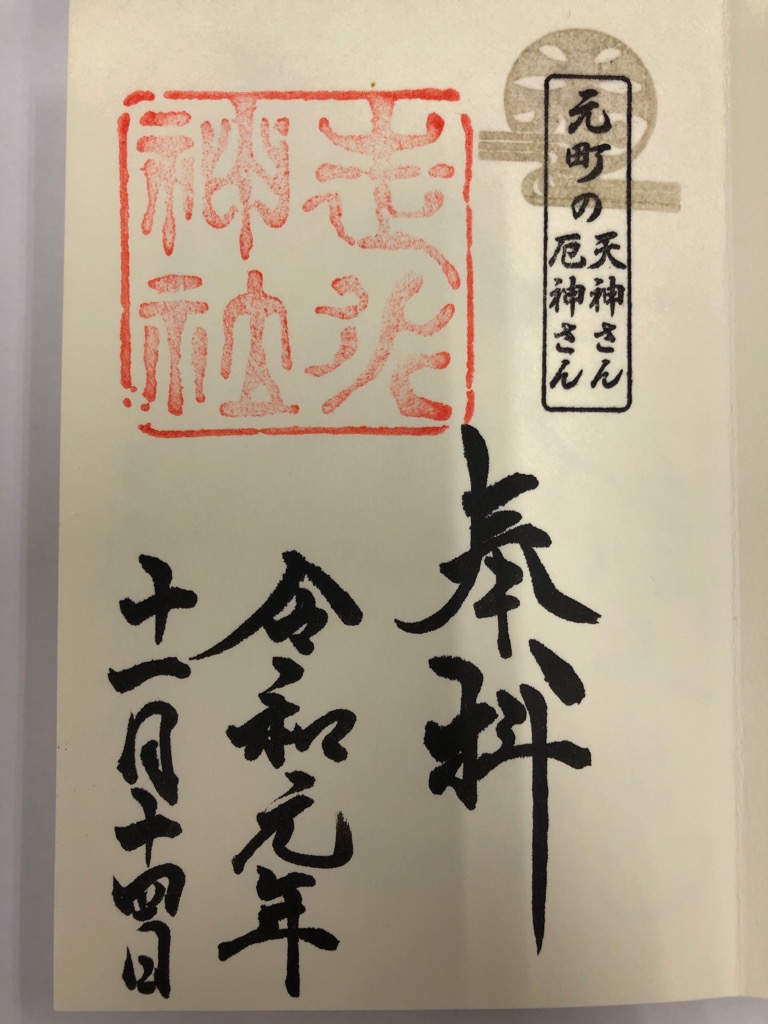 元町の
天神さん
厄神さん
走水
神社
奉拝
令和元年
十一月十四日